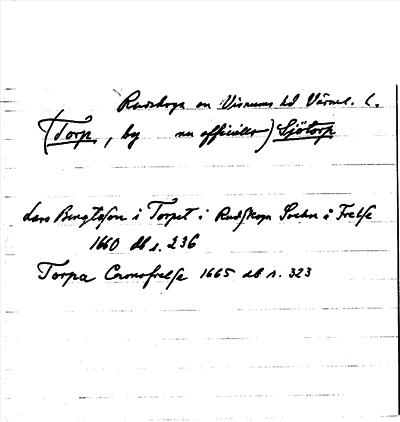 Rudskoga sn Visnums hd Värml. l.
(Torp, by nu officiellt) Sjötorp
Lars Bengtsson i Torpet i Rudskoga Sochn i Frelse
1660 db s. 236
Torpa Cronofrelse 1665 db s. 323